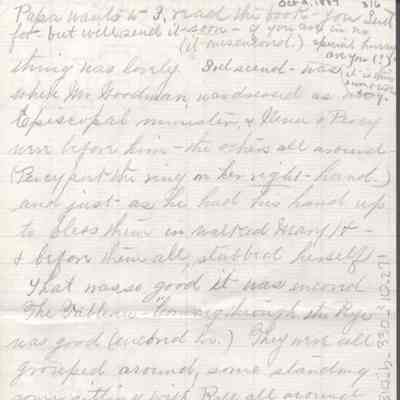 Oct 9, 1889 316
Papa wants to I, read the book - you sent
for - but will send it soon - if you are in no
(it misensored.) special hurry
are you (?)
thing was lovely. I'll send - was
when Mr Goodman, was dressed as
Episcopal minister, & & Percy
were before him - the others all around -
(Percy put the ring on her right - hand.)
and just - as he had his hand up
to bless them in walked Mary H -
& before them all, stabbed herself.
That was so good it was encored
The Tableau "Coming through the Rye"
was good (encored too.) They were all
grouped around, some standing
some sitting with Rye all around